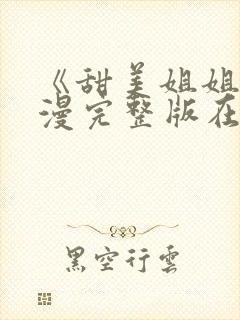 《甜美姐姐
漫完整版在
黑空行雲